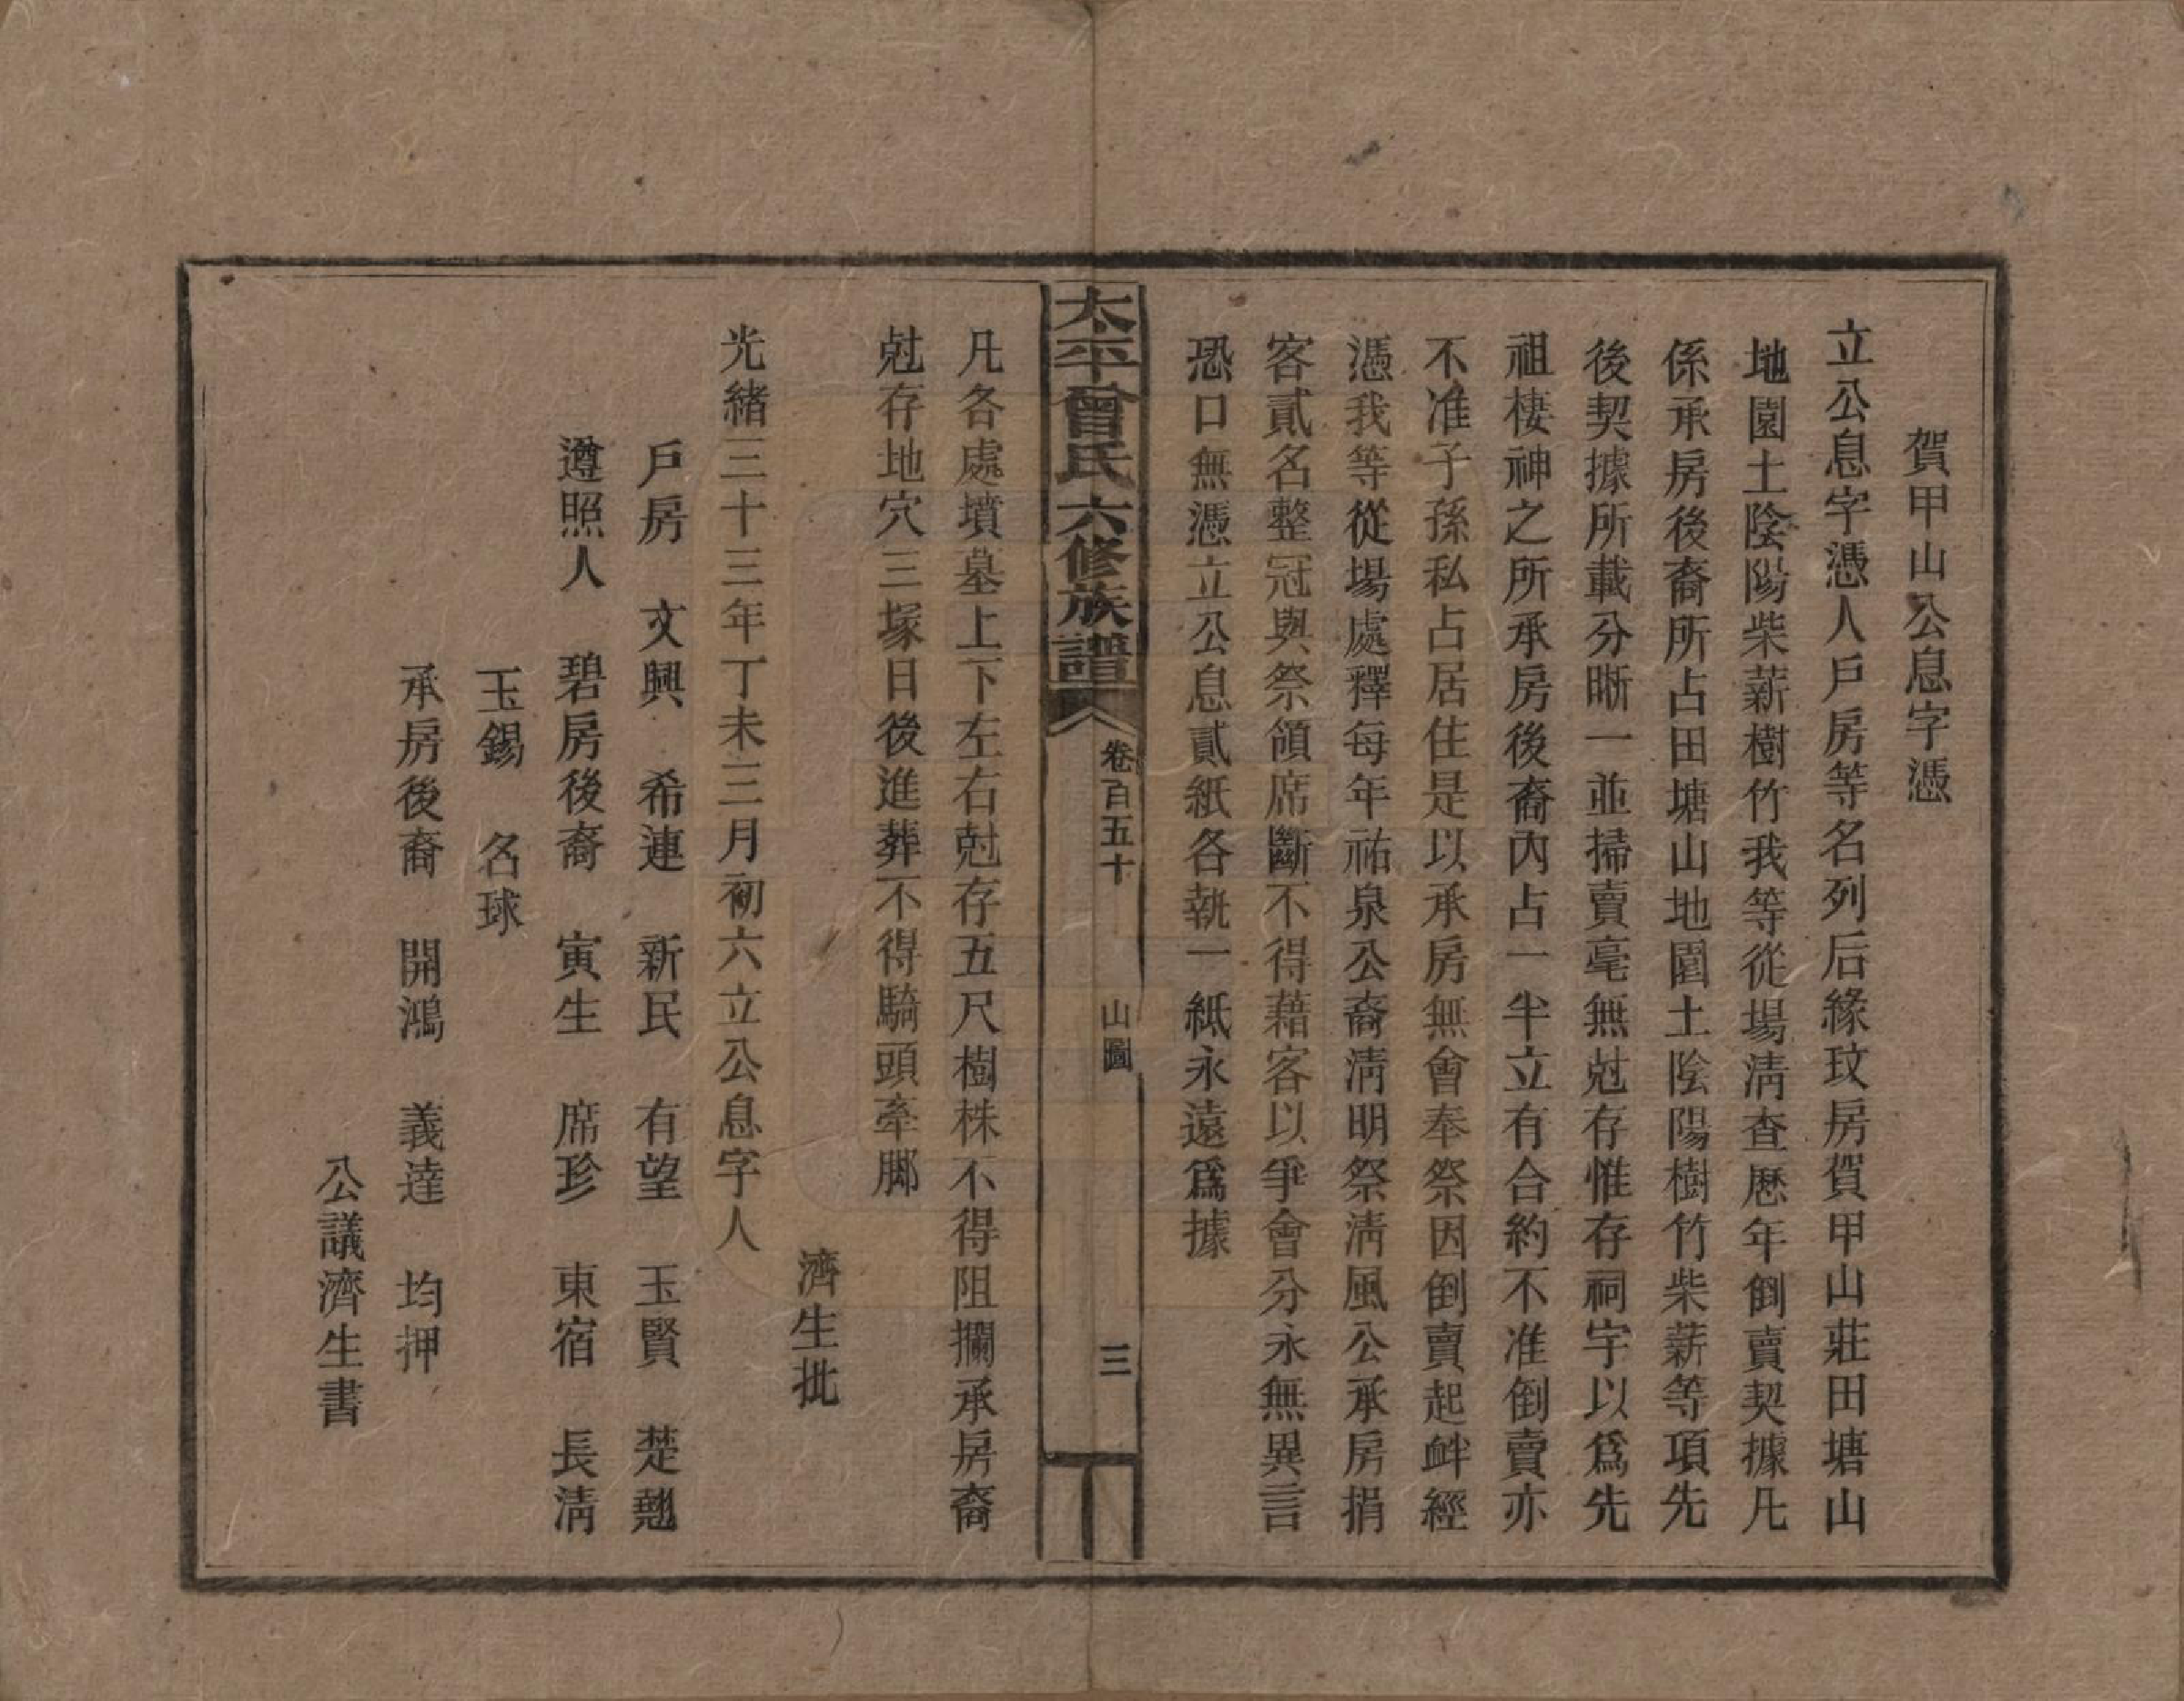 賀甲山公息字憑
立公息字憑人戶房等名列后緣玟房賀甲山莊田塘山
地園土陰陽柴薪樹竹我等從場淸查歷年倒賣契據凡
係承房後裔所占田塘山地園土陰陽樹竹柴薪等項先
後契據所載分晰一並掃賣毫無尅存惟存祠宇以爲先
祖棲神之所承房後裔內占一半立有合約不准倒賣亦
不准子孫私占居住是以承房無會奉祭因倒賣起衅經
憑我等從場處釋每年祐泉公裔淸明祭淸風公承房捐
客貳名整冠與祭領席斷不得藉客以爭會分永無異言
恐口無憑立公息貳紙各執一紙永遠爲據
太平曾氏六修族譜
卷百五十
山圖
三
凡各處墳墓上下左右尅存五尺樹株不得阻攔承房裔
尅存地穴三塚日後進葬不得騎頭牽脚
濟生批
光緒三十三年丁未三月初六立公息字人
戶房 文興 希連 新民 有望 玉賢 楚翹
遵照人 碧房後裔 寅生 席珍 東宿 長淸
玉錫 名球
承房後裔 開鴻 義達 均押
公議濟生書